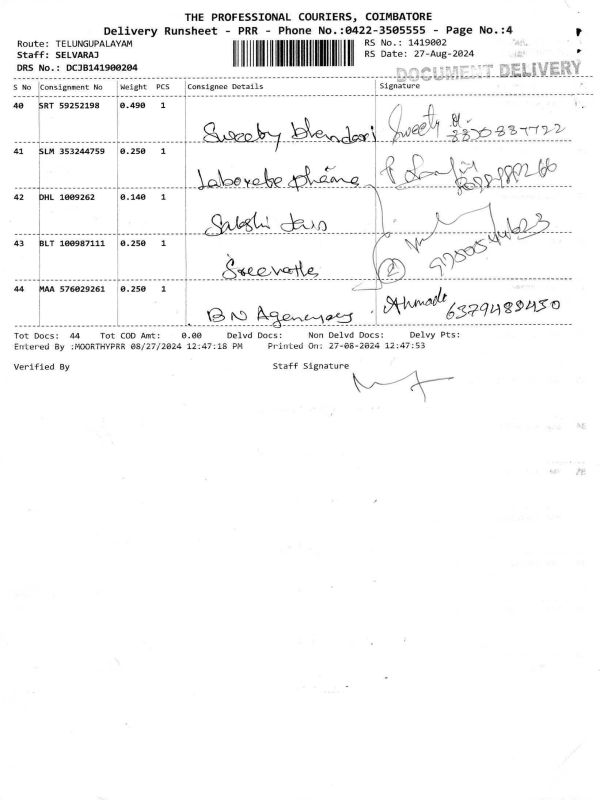 THE PROFESSIONAL COURIERS, COIMBATORE
Delivery Runsheet - PRR - Phone No.:0422-3505555 - Page No.:4
Route: TELUNGUPALAYAM
RS No.: 1419002
Staff: SELVARAJ
RS Date: 27-Aug-2024
DRS No.: DCJB141900204
DOCUMENT DELIVERY
S No Consignment No Weight PCS Consignee Details Signature
40 SRT 59252198 0.490 1
Sweety Sweety
41 SLM 353244759 0.250 1
42 DHL 1009262 0.140 1
Sakshi Jain
43 BLT 100987111 0.250 1
2
44 MAA 576029261 0.250 1
BN 6379489430
Tot Docs: 44 Tot COD Amt: 0.00 Delvd Docs: Non Delvd Docs: Delvy Pts:
Entered By :MOORTHYPRR 08/27/2024 12:47:18 PM Printed On: 27-08-2024 12:47:53
Verified By Staff Signature